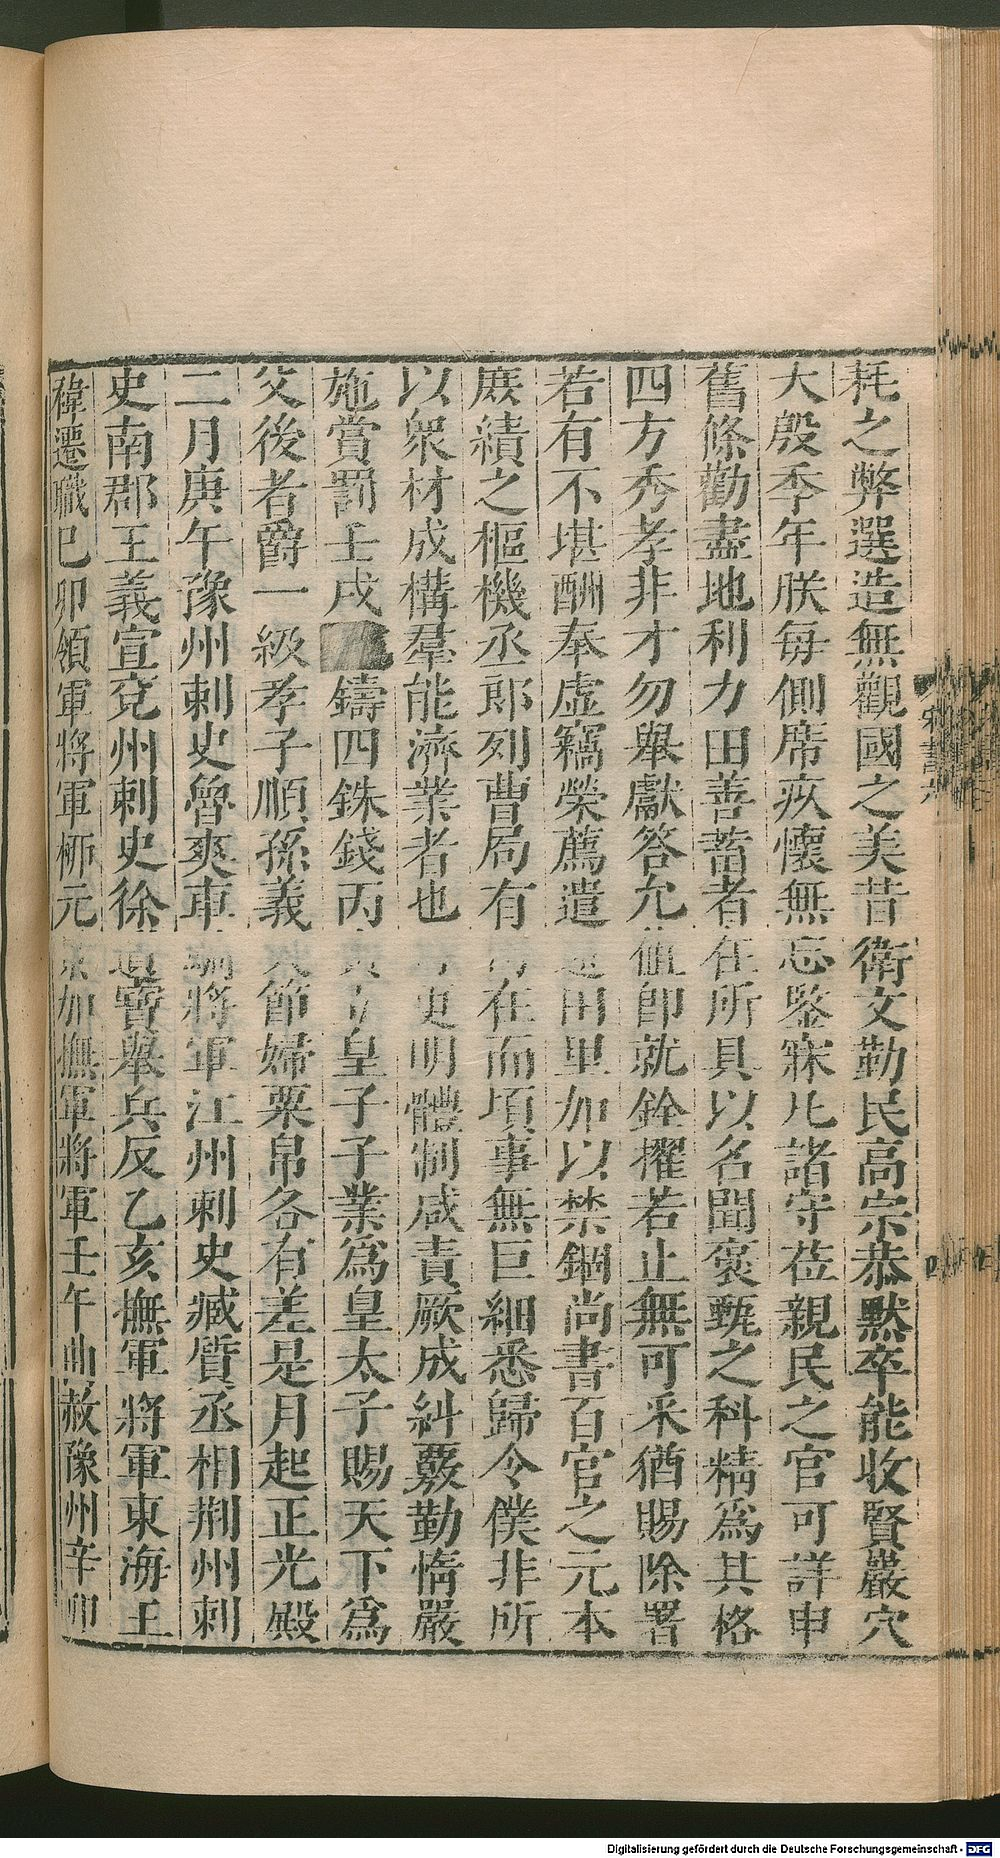 耗之弊選造無觀國之美昔衛文勤民高宗恭默卒能收賢巖穴
大殷季年朕每側席疚懷無忘鑒寐凡諸守莅親民之官可詳申
舊條勸盡地利力田善蓄者在所具以名聞褒甄之科精爲其格
四方秀孝非才勿舉獻答允値卽就銓擢若止無可采猶賜除署
若有不堪酬奉虛竊榮薦遣還田里加以禁錮尚書百官之元本
庶績之樞機丞郎列曹局有所在而頃事無巨細悉歸令僕非所
以衆材成構羣能濟業者也可更明體制咸責厥成糾覈勤惰嚴
施賞罰壬戌鑄四銖錢丙寅立皇子子業爲皇太子賜天下爲
父後者爵一級孝子順孫義夫節婦粟帛各有差是月起正光殿
二月庚午豫州刺史魯爽車騎將軍江州刺史臧質丞相荆州刺
史南郡王義宣兗州刺史徐遺寶舉兵反乙亥撫軍將軍東海王
禕遷職巳卯領軍將軍栁元景加撫軍將軍壬午曲赦豫州辛卯
宋書六
四
Digitalisierung gefördert durch die Deutsche Forschungsgemeinschaft - DFG